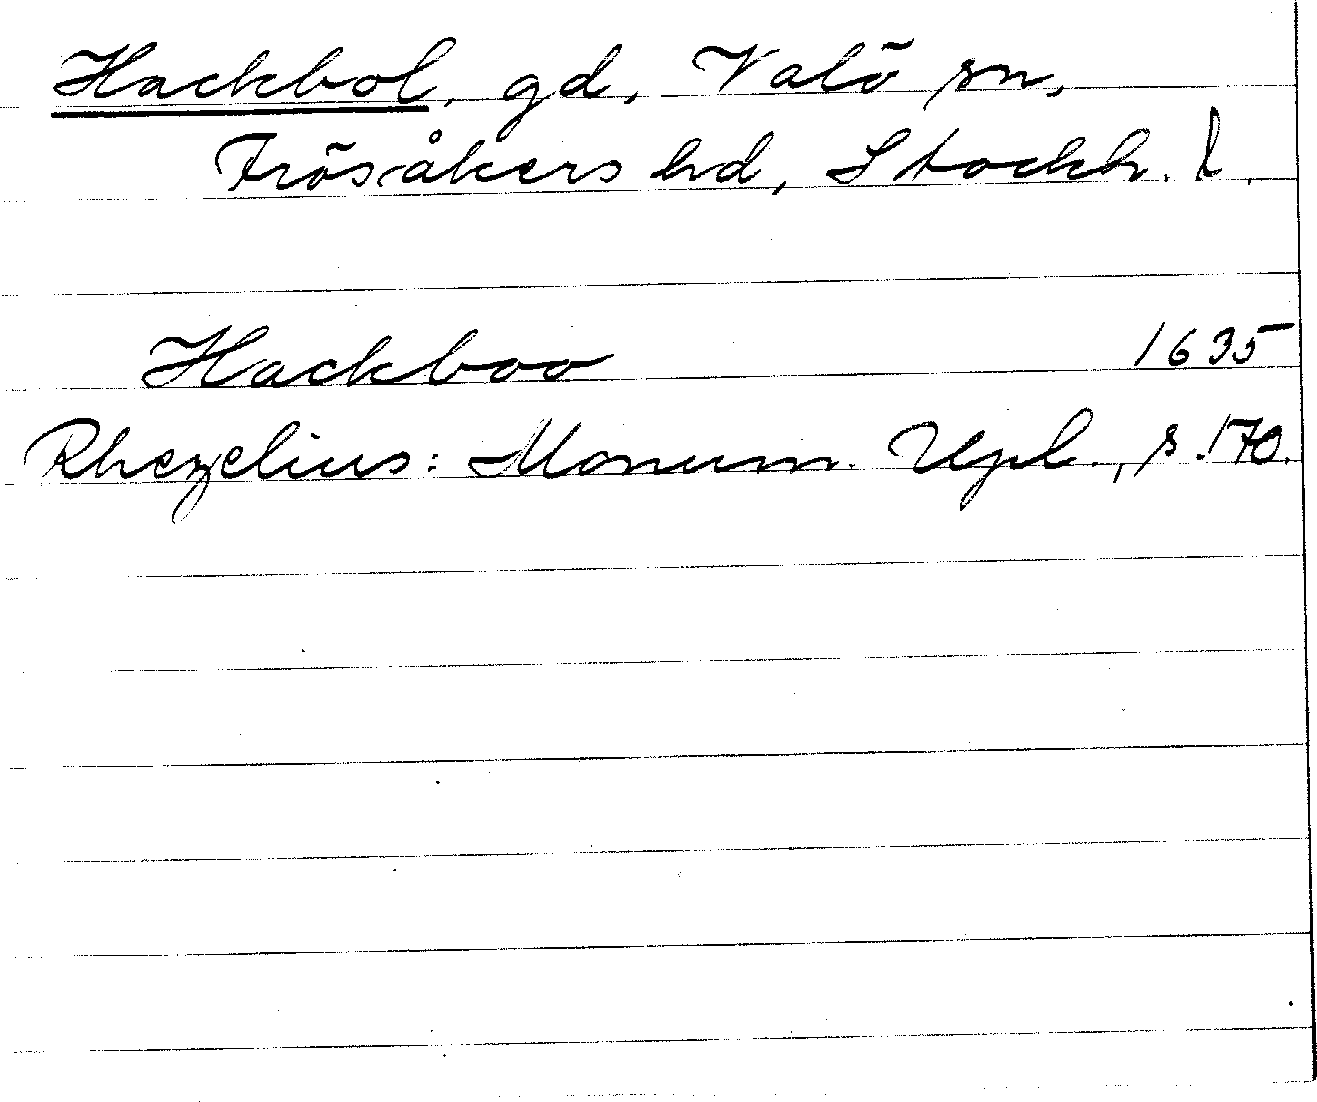 Hackbol, gd, Valö sn,
Frösåkers hd, Stockh. l.
Hackboo 1635
Rhezelius: Monum. Upl., s. 170.